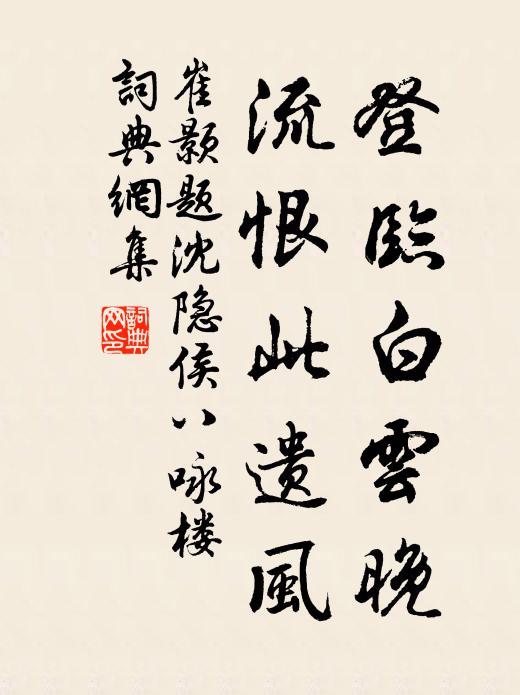 登臨白雲晚
流恨此遺風
崔颢题沈隐侯八咏楼
詞典網集
詞典网印